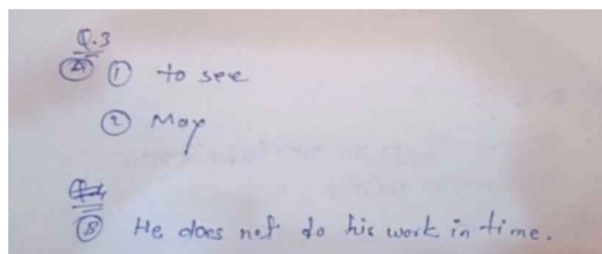 Q.3
(A) (1) to see
(2) May
(B) He does not do his work in time.